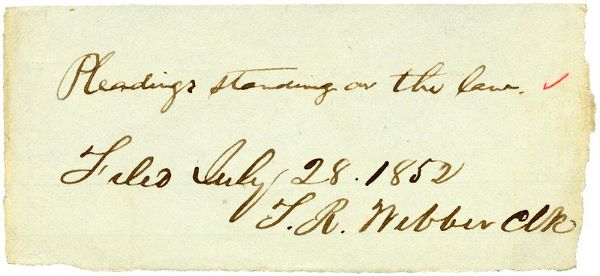 Pleadings standing on the law.
Filed July 28. 1852
T. R. Webber Clk